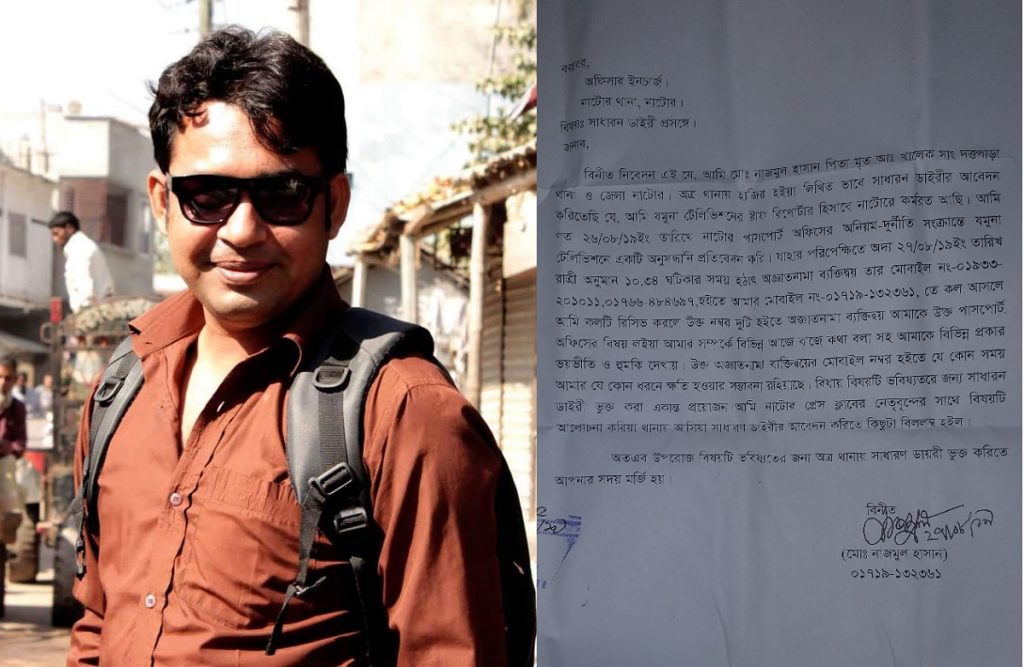 বরাবর,
অফিসার ইনচার্জ।
নাটোর থানা, নাটোর।
বিষয়ঃ সাধারন ডাইরী প্রসঙ্গে।
জনাব,
বিনীত নিবেদন এই যে, আমি মোঃ নাজমুল হাসান পিতা মৃত আঃ খালেক সাং দত্তপাড়া
থানা ও জেলা নাটোর। অত্র থানায় হাজির হইয়া লিখিত ভাবে সাধারন ডাইরীর আবেদন
করিতেছি যে, আমি যমুনা টেলিভিশনের ষ্টাফ রিপোর্টার হিসাবে নাটোরে কর্মরত আছি। আমি
গত ২৬/০৮/১৯ইং তারিখে নাটোর পাসপোর্ট অফিসের অনিয়ম-দুর্নীতি সংক্রান্তে যমুনা
টেলিভিশনে একটি অনুসন্ধানি প্রতিবেদন করি। যাহার পরিপেক্ষিতে অদ্য ২৭/০৮/১৯ইং তারিখ
রাত্রী অনুমান ১০.৩৪ ঘটিকার সময় হঠাৎ অজ্ঞাতনামা ব্যক্তিদ্বয় তার মোবাইল নং-০১৯৩৩-
২০১০১১,০১৭৬৬-৪৮৪৬৯৭,হইতে আমার মোবাইল নং-০১৭১৯-১৩২৩৬১, তে কল আসলে
আমি কলটি রিসিভ করলে উক্ত নম্বর দুটি হইতে অজ্ঞাতনামা ব্যক্তিদ্বয় আমাকে উক্ত পাসপোর্ট
অফিসের বিষয় লইয়া আমার সম্পর্কে বিভিন্ন আজে বাজে কথা বলা সহ আমাকে বিভিন্ন প্রকার
ভয়ভীতি ও হুমকি দেখায়। উক্ত অজ্ঞাতনামা ব্যক্তিদ্বয়ের মোবাইল নম্বর হইতে যে কোন সময়
আমার যে কোন ধরনে ক্ষতি হওয়ার সম্ভাবনা রহিয়াছে। বিধায় বিষয়টি ভবিষ্যতের জন্য সাধারন
ডাইরী ভুক্ত করা একান্ত প্রয়োজন আমি নাটোর প্রেস ক্লাবের নেতৃবৃন্দের সাথে বিষয়টি
আলোচনা করিয়া থানায় আসিয়া সাধারণ ডাইরীর আবেদন করিতে কিছুটা বিলম্ব হইল।
অতএব উপরোক্ত বিষয়টি ভবিষ্যতের জন্য অত্র থানায় সাধারণ ডায়রী ভুক্ত করিতে
আপনার সদয় মর্জি হয়।
বিনীত
(মোঃ নাজমুল হাসান)
০১৭১৯-১৩২৩৬১